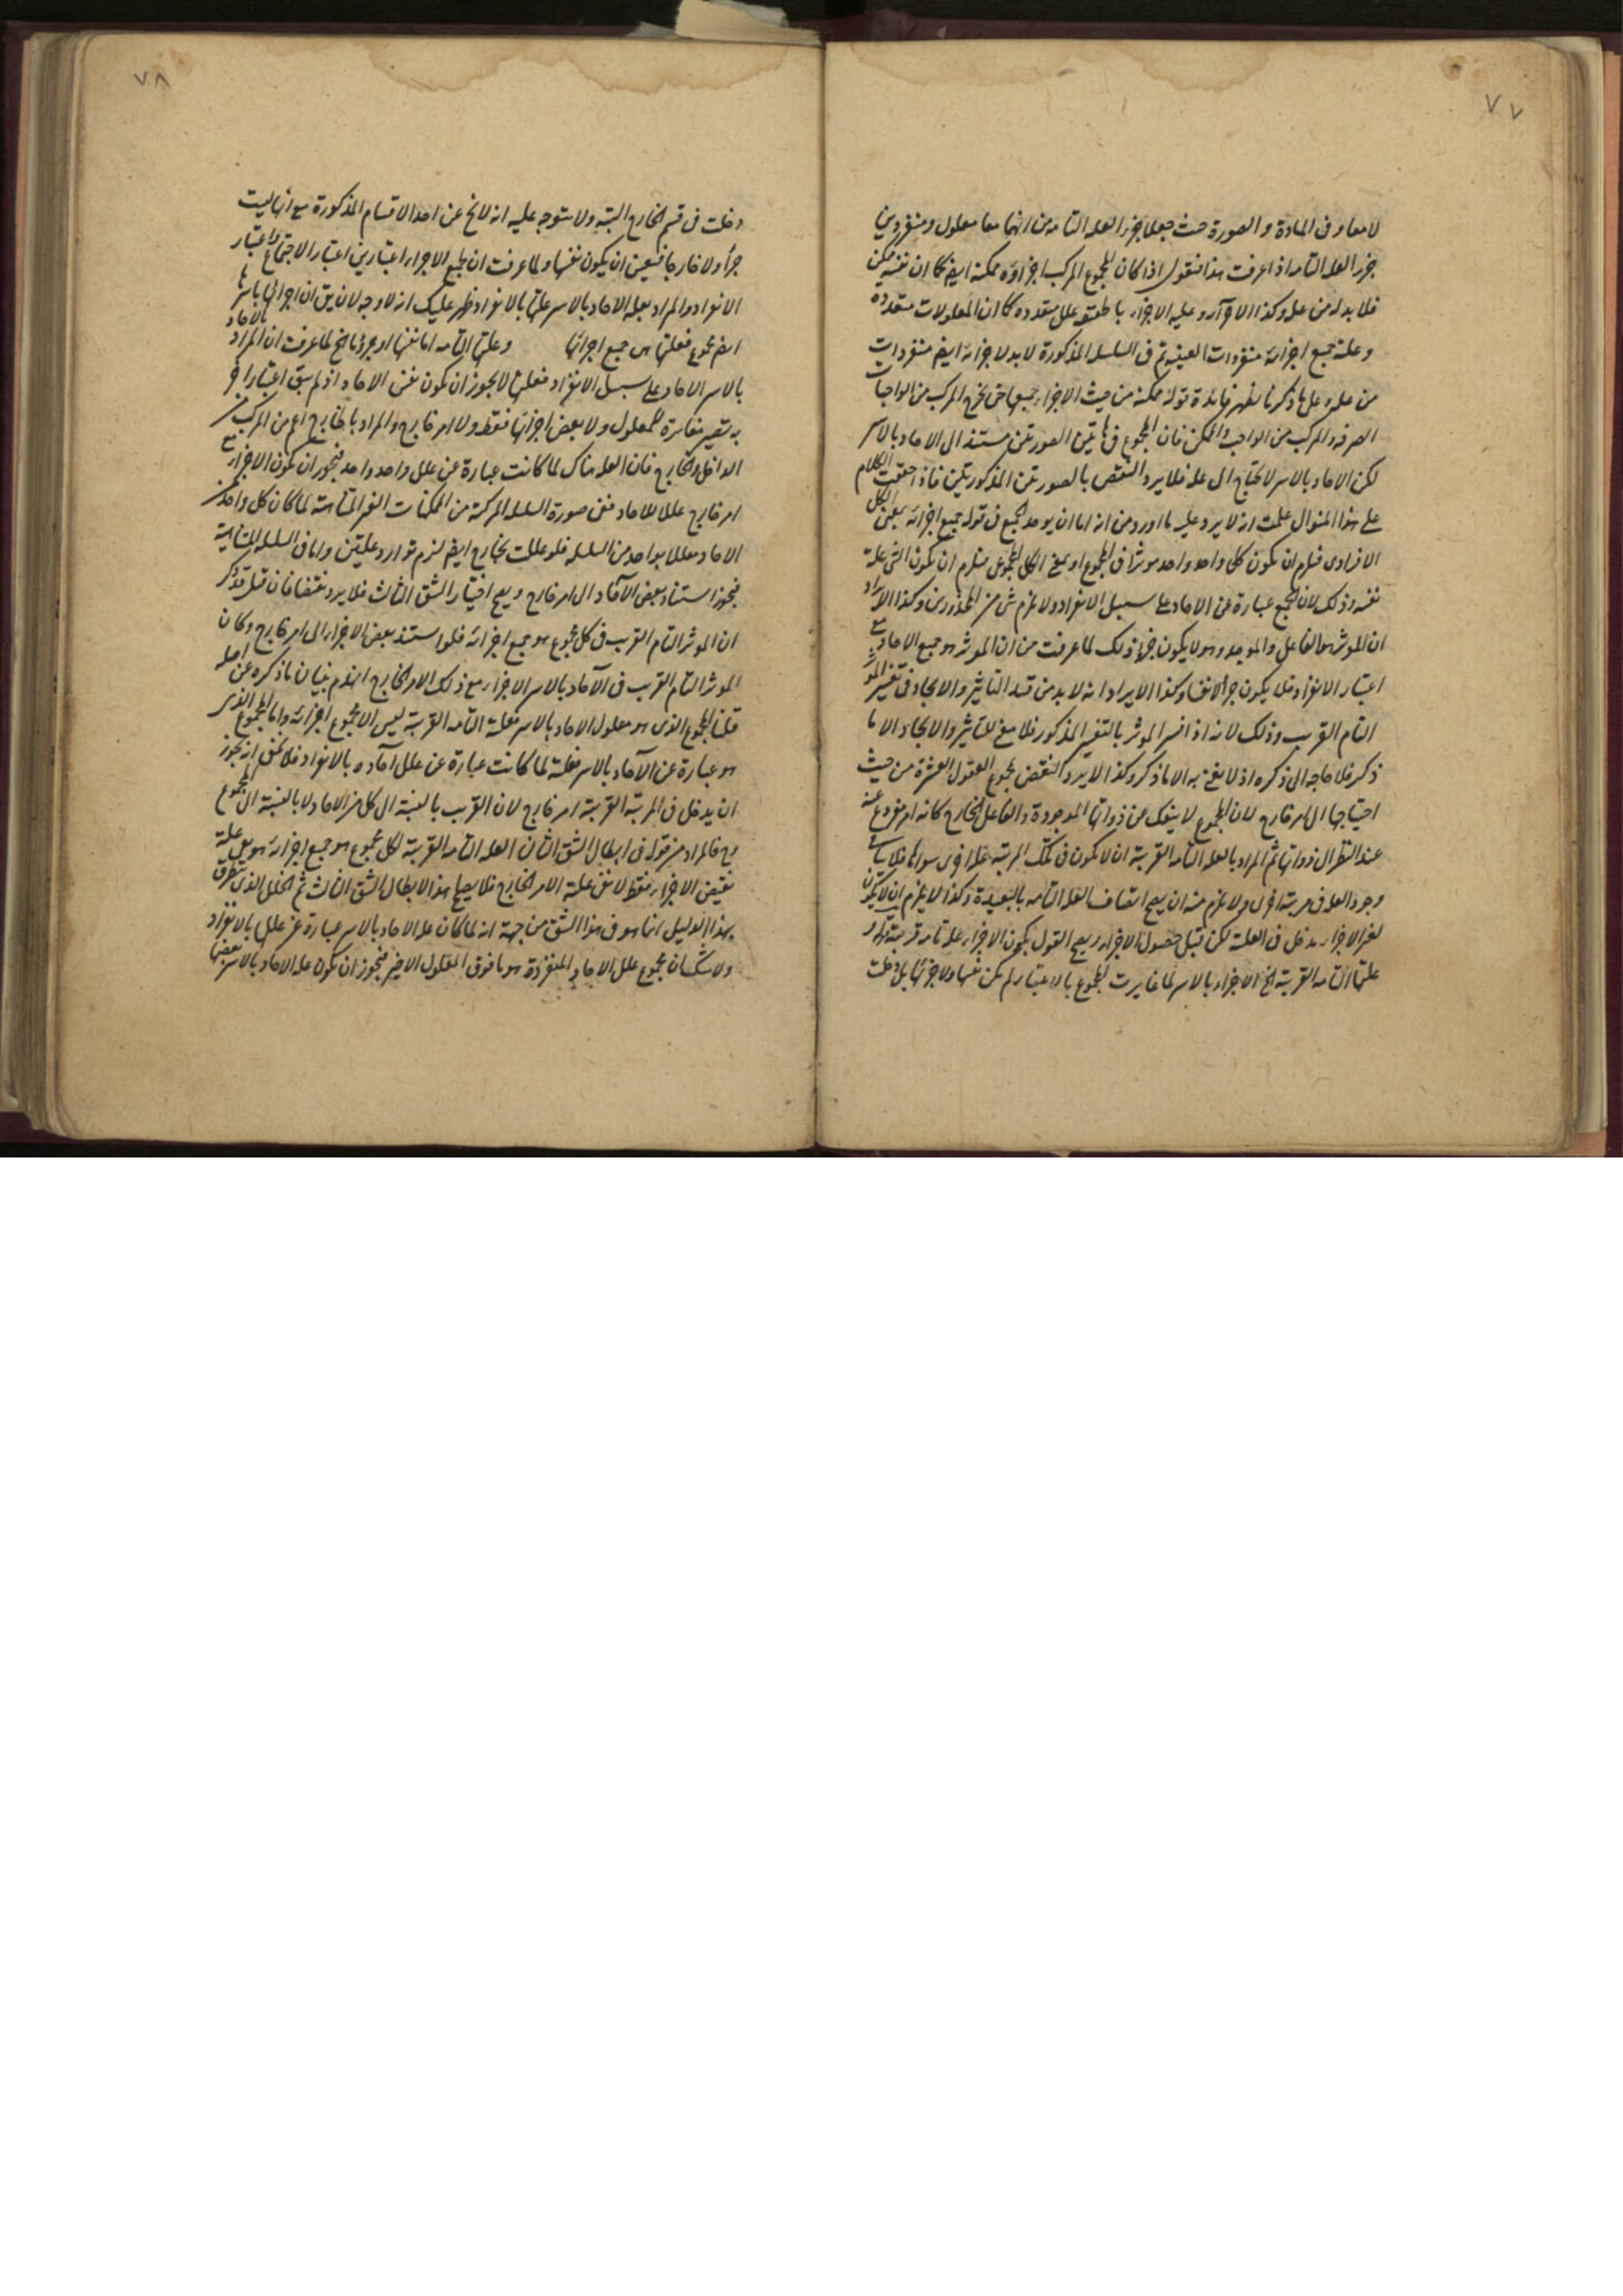 ٧٧
لا معا و فى المادة و الصورة حيث جعلا جزء العلة التامة من انهما معا معلول و منفردين
جزء العلة التامة اذا عرفت هذا فنقول اذا كان المجموع المركب اجزاؤه ممكنة ايضا كما ان نفسه ممكن
فلا بد له من علة و كذا الاجزاء علل متعددة كما ان المعلولات متعددة
و علة جميع اجزائه منفردات ثم فى السلسلة المذكورة لا بد لاجزائه ايضا منفردات
من علة و على ما ذكرنا يظهر فائدة قوله ممكنة من حيث الاجزاء جميعها حتى يخرج المركب من الواجبات
الصرفة و المركب من الواجب و الممكن فان المجموع فى هاتين الصورتين مستند الى الاحاد بالاسر
لكن الاحاد بالاسر لا يحتاج الى علة فلا يرد النقض بالصورتين المذكورتين فاذا حققت الكلام
على هذا المنوال علمت انه لا يرد عليه ما اورد من انه اما ان يوخذ الجميع فى قوله جميع اجزائه بمعنى الكل
الافرادى فيلزم ان يكون كل واحد واحد موثرا فى المجموع او بمعنى الكل المجموعى فيلزم ان يكون الشئ علة
نفسه و ذلك لان الجميع عبارة عن الاحاد على سبيل الانفراد و لا يلزم شئ من المحذورين و كذا الايراد
ان الموثر هو الفاعل و الموجد و هو لا يكون جزءا ذلك لما عرفت من ان الموثر هو جميع الاحاد مع
اعتبار الانفراد فلا يكون جزأ لانفا و كذا الايراد انه لا بد من قيد التاثير و الايجاد فى تفسير الموثر
التام القريب و ذلك لانه اذا فسر الموثر بالتفسير المذكور فلا معنى للتاثير و الايجاد الا ما
ذكر فلا حاجة الى ذكره اذ لا يعنى به الا ما ذكر و كذا لا يرد النقض بمجموع العقول العشرة من حيث
احتياجها الى امر خارج لان المجموع لا ينفك عن ذواتها الموجودة و الفاعل الخارج كانه امر مفروغ عنه
عند النظر الى ذواتها ثم المراد بالعلة التامة القريبة ان لا يكون فى تلك المرتبة علة اخرى سواها فلا ينافى
وجود العلة فى مرتبة اخرى و لا يلزم منه ان يصح اتصاف العلة التامة بالبعيدة و كذا لا يلزم ان لا يكون
لغير الاجزاء مدخل فى العلية لكن قبل حصول الاجزاء و يصح القول بكون الاجزاء علة تامة قريبة قوله و
علتها التامة القريبة الخ الاجزاء بالاسر لما غايرت المجموع بالاعتبار لم يكن نفسها و لا جزئها بل دخلت
٧٨
دخلت فى قسم الخارج البتة و لا يتوجه عليه انه لا يخ عن احد الاقسام المذكورة مع انها ليست
جزأ و لا خارجا فتعين ان يكون نفسها و لما عرفت ان لجميع الاجزاء اعتبارين اعتبار الاجتماع و اعتبار
الانفراد و المراد بعلة الاحاد بالاسر علتها بالانفراد ظهر عليك انه لا وجه لان يق ان اجزائها باسرها
ايضا مجموع فعلتها هى جميع اجزائها و علتها التامة اما نفسها او جزؤها الخ لما عرفت ان المراد بالاحاد
بالاسر الاحاد على سبيل الانفراد فعلتها لا يجوز ان يكون نفس الاحاد اذ لم يبق اعتبار اخر
به يصير مغايرة للمعلول و لا بعض اجزائها فقط و لا امر خارج و المراد بالخارج اعم من المركب من
الداخل و الخارج فان العلة هناك لما كانت عبارة عن علل واحد واحد فيجوز ان يكون الاجزاء مع
امر خارج عللا للاحاد ففى صورة السلسلة المركبة من الممكنات الغير المتناهية لما كان كل واحد من
الاحاد معللا بواحد من السلسلة فلو عللت بخارج ايضا لزم توارد علتين و اما فى السلسلة المتناهية
فيجوز استناد بعض الآحاد الى امر خارج و يصح اختيار الشق الثالث فلا يرد نقضا فان قيل قد ذكر
ان الموثر التام القريب فى كل مجموع هو جميع اجزائه فلو استند بعض الاجزاء الى امر خارج و كان
الموثر التام القريب فى الآحاد بالاسر الاجزاء مع ذلك الامر الخارج انهدم بنيان ما ذكره عن اصله
قلنا المجموع الذى هو معلول الاحاد بالاسر فعلته التامة القريبة ليس الا مجموع اجزائه و اما المجموع الذى
هو عبارة عن الآحاد بالاسر فعلته لما كانت عبارة عن علل آحاده بالانفراد فلا يخفى انه يجوز
ان يدخل فى المرتبة القريبة امر خارج لان القريب بالنسبة الى كل من الاحاد لا بالنسبة الى المجموع
و ح فالمراد من قوله فى ابطال الشق الثانى العلة التامة القريبة لكل مجموع هو جميع اجزائه هو بعض علة
بعض الاجزاء فقط لا نفى علية الامر الخارج فلا يصلح هذا لابطال الشق الثالث ثم الخلل الذى يتطرق
بهذا الدليل انما هو فى هذا الشق من جهة انه لما كان علة الاحاد بالاسر عبارة عن عللها بالانفراد
و لا شك ان مجموع علل الاحاد المنفردة هو ما فوق المعلول الاخير فيجوز ان يكون علة الاحاد بالاسر بعضها